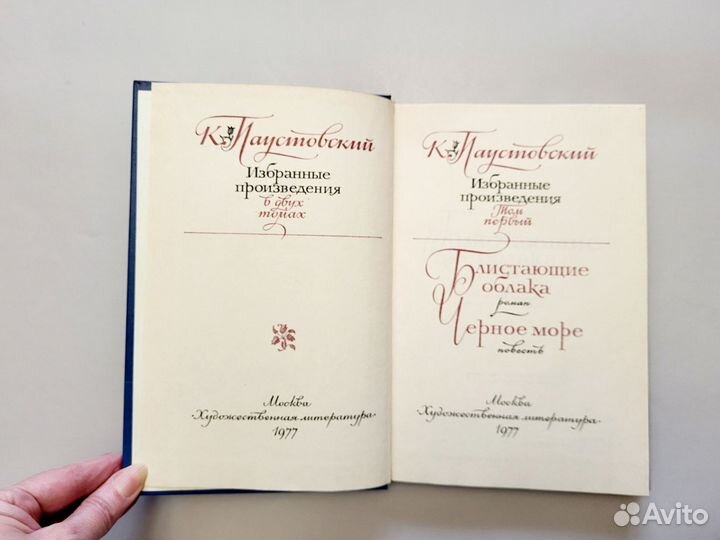 К Паустовский
Избранные
произведения
в двух
томах
Москва
·Художественная литература·
1977
К Паустовский
Избранные
произведения
Том
первый
Блистающие
облака
роман
Черное море
повесть
Москва
·Художественная литература·
1977
Avito